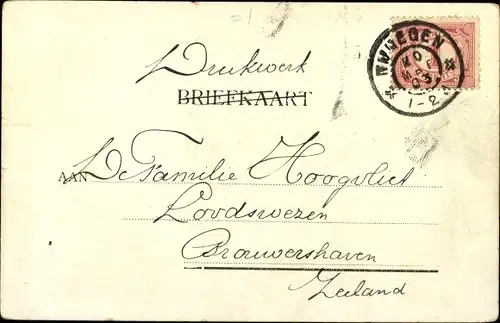 NIJMEGEN
1-2
Drukwerk
BRIEFKAART
AAN De Familie Hoogvliet
Loodswezen
Brouwershaven
Zeeland